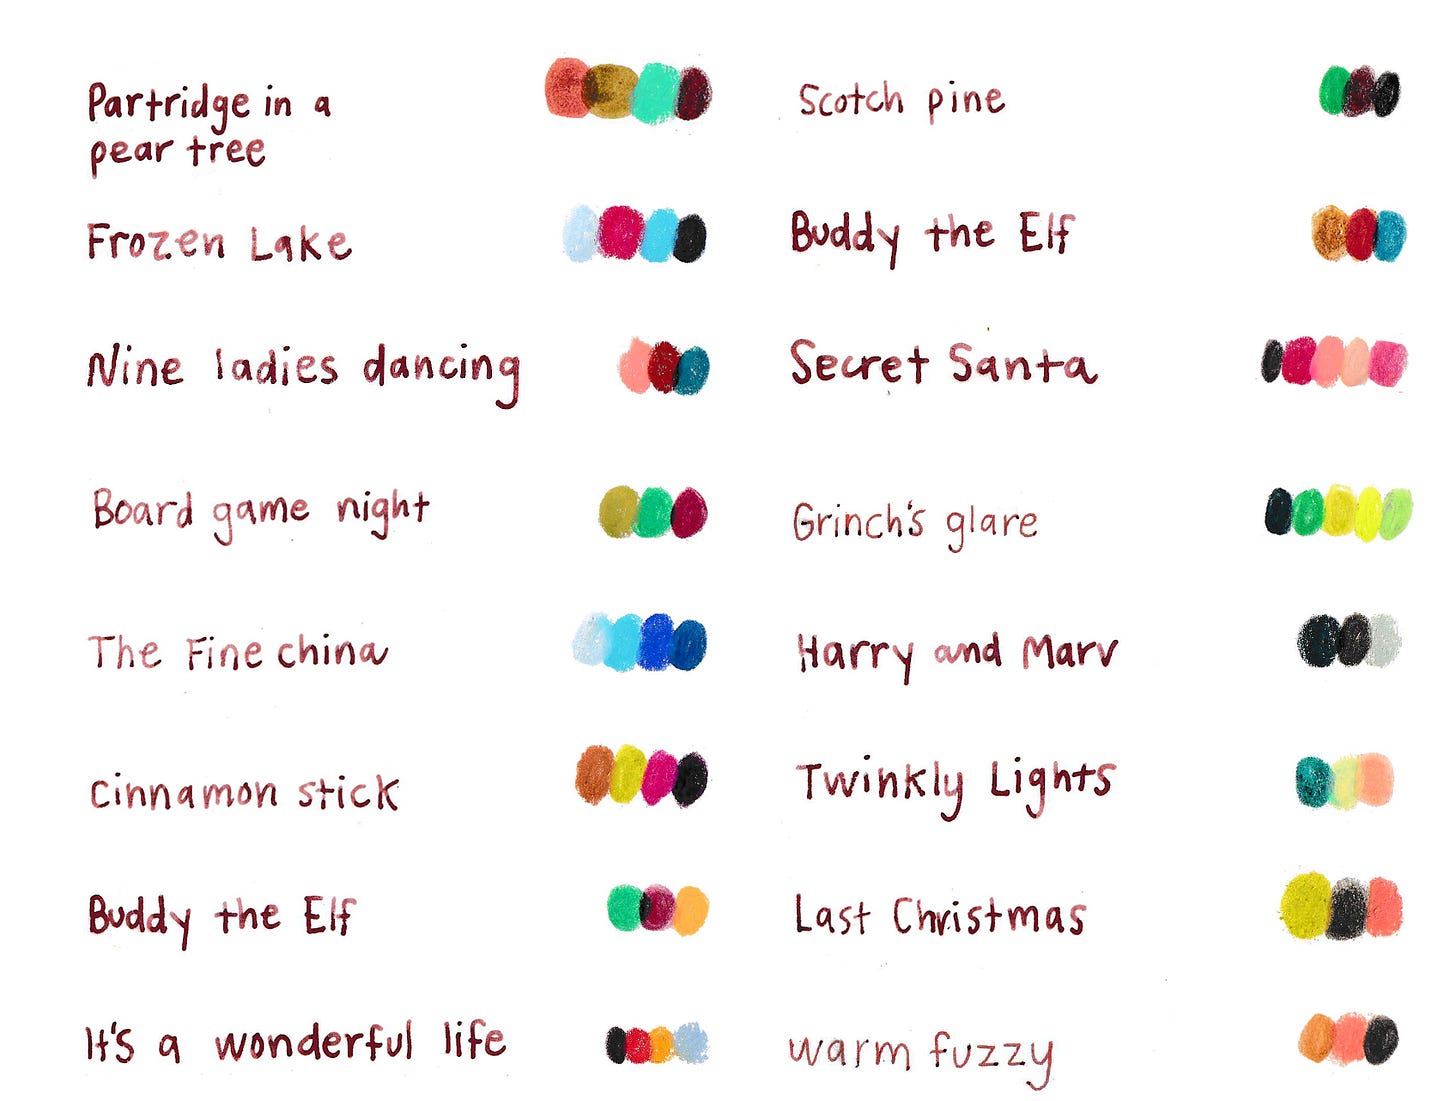 Partridge in a
pear tree
Frozen Lake
Nine ladies dancing
Board game night
The Fine china
cinnamon stick
Buddy the Elf
It's a wonderful life
Scotch pine
Buddy the Elf
Secret Santa
Grinch's glare
Harry and Marv
Twinkly Lights
Last Christmas
warm fuzzy